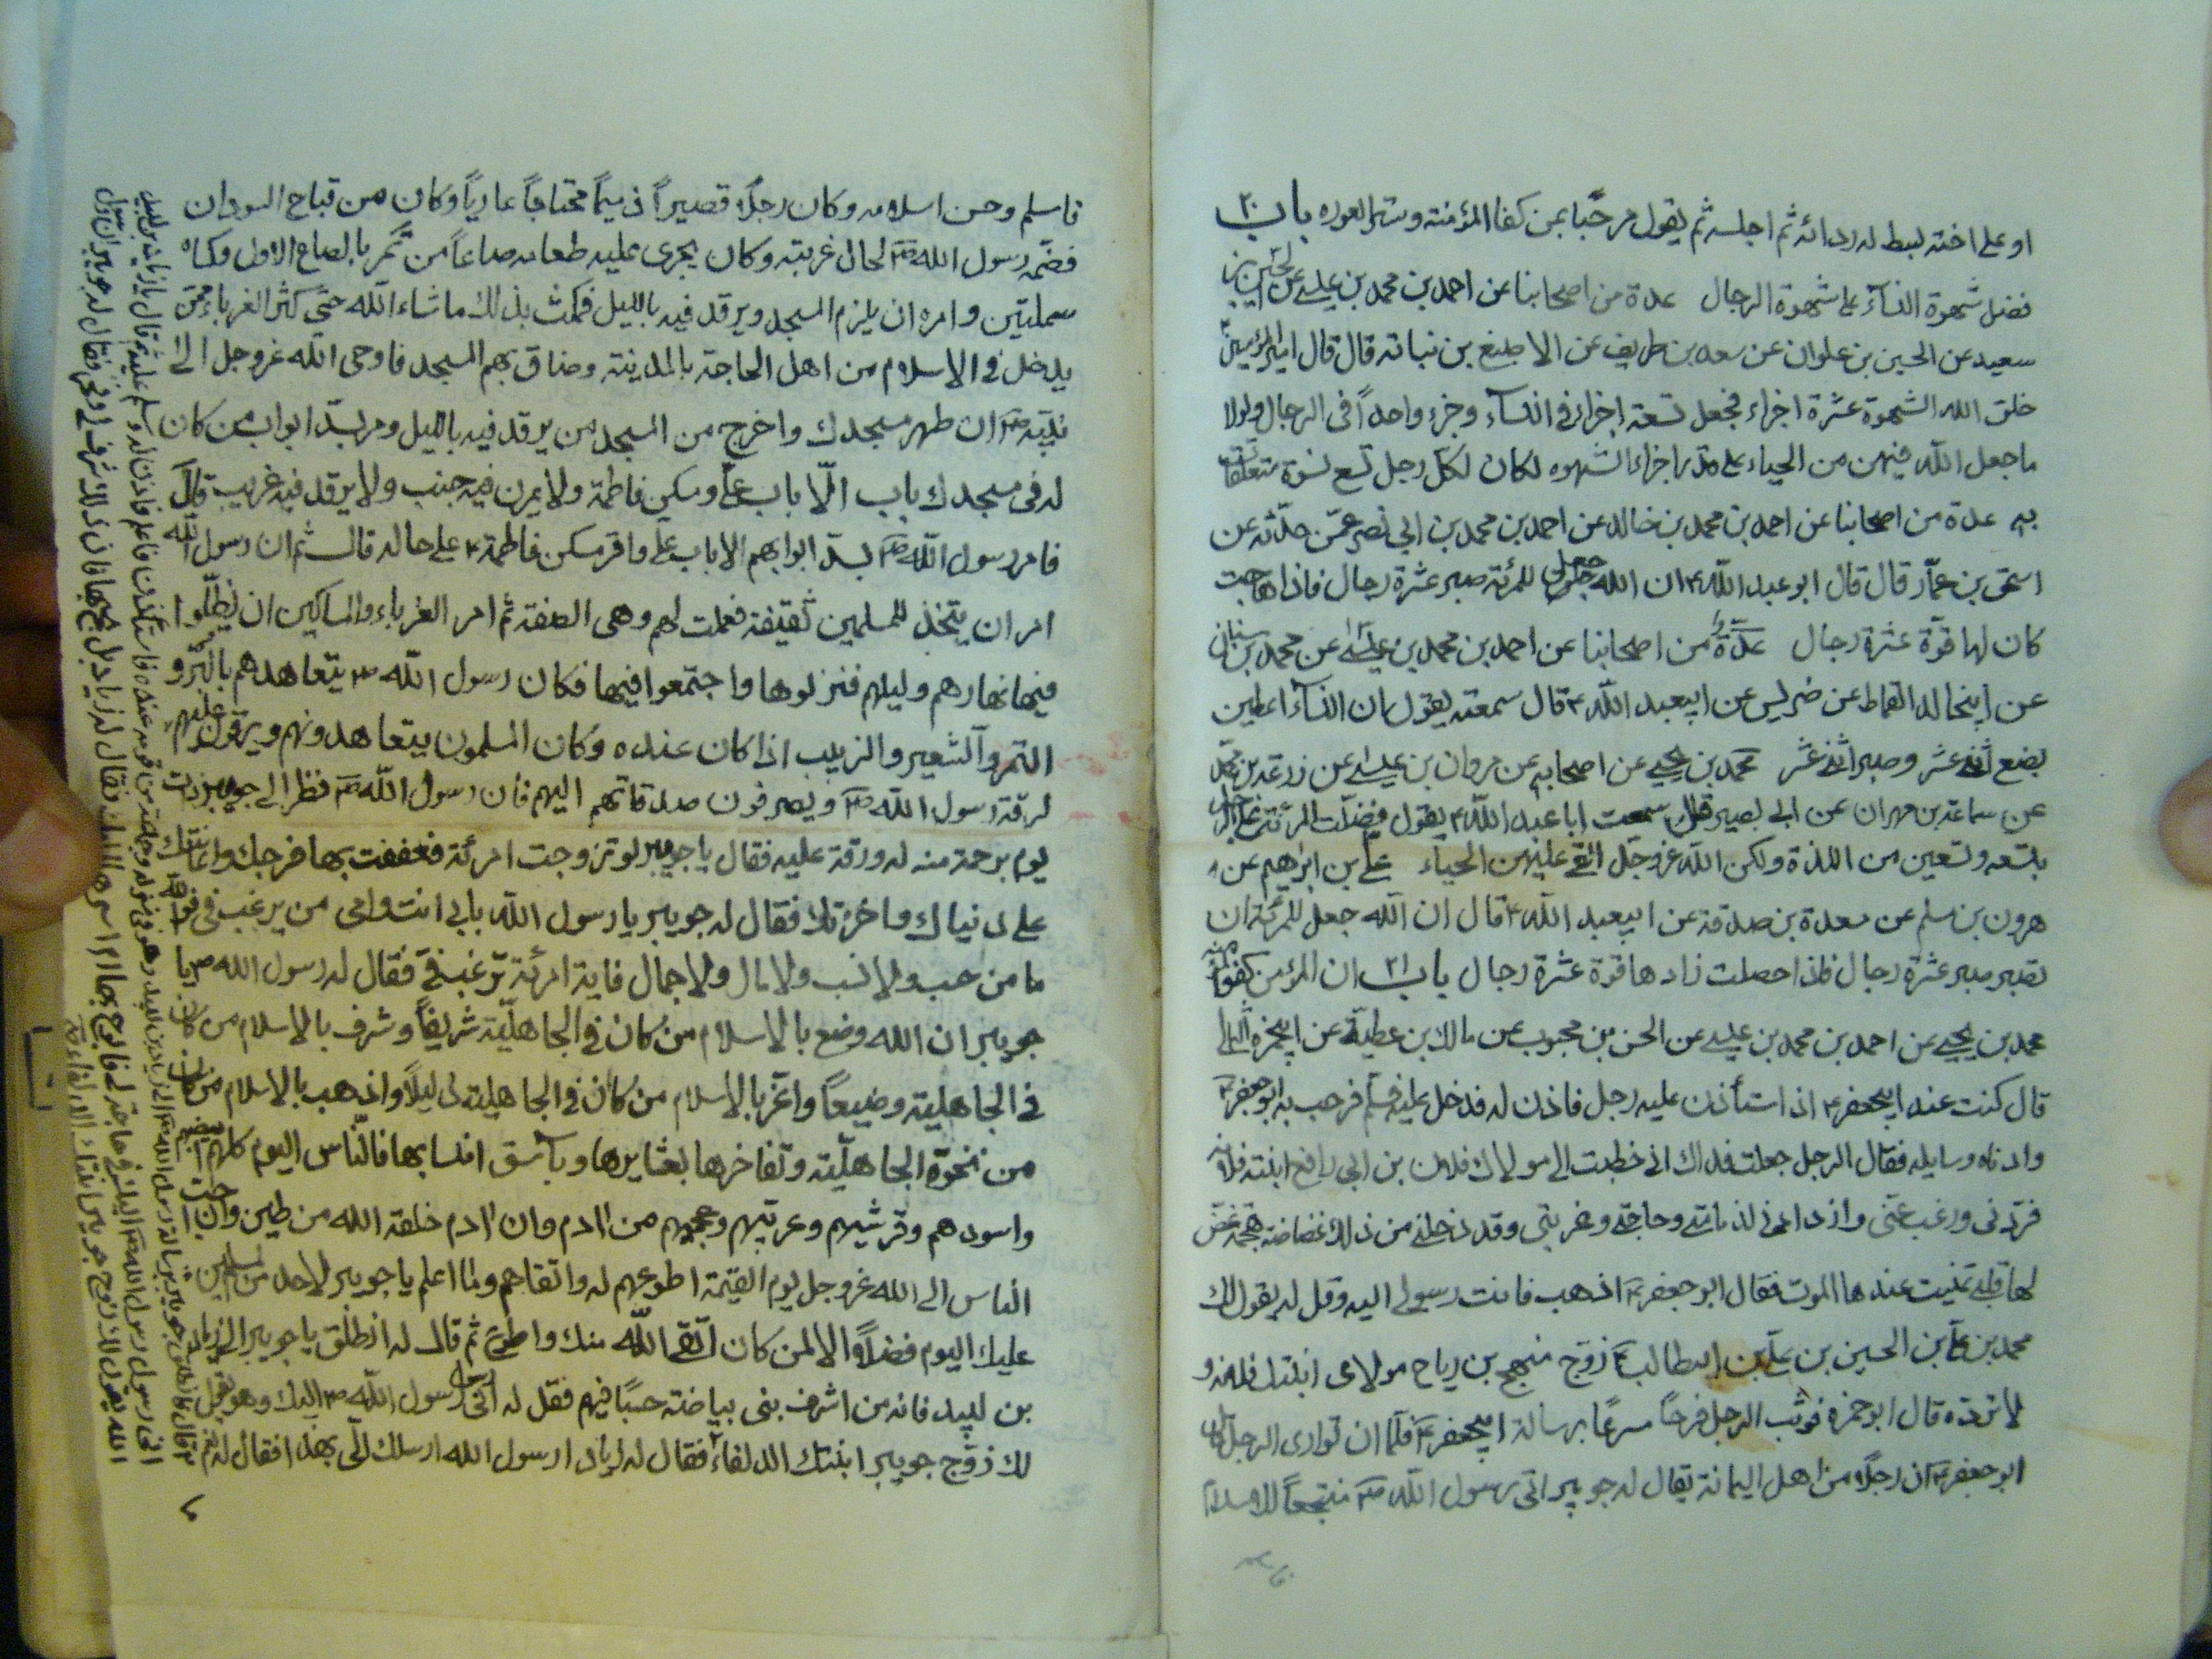 او على اخته لبسط له ردائه ثم اجلسه ثم يقول مرحبًا بمن كفا المؤنة وستر العوره باب ٢٠
فضل شهوة النسآء على شهوة الرجال عدة من اصحابنا عن احمد بن محمد بن عيسى عن الحسين بن
سعيد عن الحسين بن علوان عن سعد بن طريف عن الاصبغ بن نباته قال قال امير المؤمنين
خلق الله الشهوة عشرة اجزاء فجعل تسعة اجزاء فى النسآء وجزء واحداً فى الرجال ولولا
ما جعل الله فيهن من الحياء على قدر اجزاء الشهوه لكان لكل رجل تسع نسوة متعلقات
به عدة من اصحابنا عن احمد بن محمد بن خالد عن احمد بن محمد بن ابى نصر عمّن حدّثه عن
اسحق بن عمّار قال قال ابو عبد الله ان الله جعل للمرئة صبر عشرة رجال فاذا هاجت
كان لها قوّة عشرة رجال عدّة من اصحابنا عن احمد بن محمد بن عيسى عن محمد بن سنان
عن ابيخالد القماط عن ضريس عن ابيعبد الله قال سمعته يقول ان النسآء اعطين
بضع اثنى عشر وصبر اثنى عشر محمد بن يحيى عن اصحابه عن مروان بن عيسى عن زرعة بن محمّد
عن سماعة بن مهران عن ابى بصير قال سمعت ابا عبد الله يقول فضّلت المرئة على الرجل
بتسعه وتسعين من اللذة ولكن الله عز وجل القى عليهن الحياء على بن ابراهيم عن
هرون بن مسلم عن مسعدة بن صدقة عن ابيعبد الله قال ان الله جعل للمرئة ان
تصبر صبر عشرة رجال فاذا حصلت زادها قوة عشرة رجال باب ٢١ ان المؤمن كفو المؤمنة
محمد بن يحيى عن احمد بن محمد بن عيسى عن الحسن بن محبوب عن مالك بن عطية عن ابيحمزة الثمالى
قال كنت عند ابيجعفر اذ استأذن عليه رجل فاذن له فدخل عليه فسلّم فرحب به ابو جعفر
وادناه وسايله فقال الرجل جعلت فداك انى خطبت الى مولاك فلان بن ابى رافع ابنته فلانه
فردّنى ورغب عنّى وازدرانى لذمامتى وحاجتى وغربتى وقد دخلنى من ذلك غضاضة هجمة غض
لها قلبى تمنيت عندها الموت فقال ابو جعفر اذهب فانت رسولى اليه وقل له يقول لك
محمد بن على بن الحسين بن على بن ابيطالب زوّج منجح بن رباح مولاى ابنتك فلانه و
لا ترده قال ابو حمزه فوثب الرجل فرحاً مسرعًا برسالة ابيجعفر فلما ان توارى الرجل قال
ابو جعفر ان رجلاً من اهل اليمامة يقال له جويبر اتى رسول الله منتجعاً للاسلام
فاسلم وحسن اسلامه وكان رجلاً قصيراً ذميماً محتاجاً عارياً وكان من قباح السودان
فضمّه رسول الله لحال غربته وكان يجرى عليه طعامه صاعاً من تمر بالصاع الاول وكساه
سملتين وامره ان يلزم المسجد ويرقد فيه بالليل فمكث بذلك ماشاء الله حتى كثر الغرباء ممن
يدخل فى الاسلام من اهل الحاجة بالمدينة وضاق بهم المسجد فاوحى الله عزوجل الى
نبيّه ان طهر مسجدك واخرج من المسجد من يرقد فيه بالليل ومر بسدّ ابواب من كان
له فى مسجدك باب الّا باب على ومسكن فاطمة ولا يمرن فيه جنب ولا يرقد فيه غريب قال
فامر رسول الله بسدّ ابوابهم الا باب على واقر مسكن فاطمة على حاله قال ثم ان رسول الله
امر ان يتخذ للمسلمين ثقيفة فعملت لهم وهى الصفة ثم امر الغرباء والمساكين ان يظلّوا
فيها نهارهم وليلهم فنزلوها واجتمعوا فيها فكان رسول الله يتعاهدهم بالبرّ و
التمر والشعير والزبيب اذا كان عنده وكان المسلمون يتعاهدونهم ويرقون عليهم
لرقة رسول الله ويصرفون صدقاتهم اليهم فان رسول الله نظر الى جويبر ذات
يوم برحمة منه له ورقة عليه فقال يا جويبر لو تزوجت امرئة فعففت بها فرجك واعانتك
على دنياك واخرتك فقال له جويبر يا رسول الله بابى انت وامى من يرغب فىّ فو الله
ما من حسب ولا نسب ولا مال ولا جمال فاية امرئة ترغب فىّ فقال له رسول الله يا
جويبر ان الله وضع بالاسلام من كان فى الجاهليّة شريفاً وشرف بالاسلام من كان
فى الجاهلية وضيعاً واعز بالاسلام من كان فى الجاهلية ذليلاً واذهب بالاسلام من كان
من نخوة الجاهليّة وتفاخرها بعشايرها وباسق انسابها فالنّاس اليوم كلهم ابيضهم
واسودهم وقرشيهم وعربيهم وعجميهم من ادم وان ادم خلقه الله من طين وان احب
الناس الى الله عزوجل يوم القيمة اطوعهم له واتقاهم وما اعلم يا جويبر لاحد من المسلمين
عليك اليوم فضلاً الا لمن كان اتقى الله منك واطوع ثم قال له انطلق يا جويبر الى زياد
بن لبيد فانه من اشرف بنى بياضة حسبًا فيهم فقل له انى رسول رسول الله اليك وهو يقول
لك زوّج جويبر ابنتك الدلفاء قال فانطلق جويبر برسالة رسول الله الى زياد بن لبيد وهو فى منزله وجماعة من قومه عنده فاستأذن فاعلم فاذن له وسلم عليه ثم قال يا زياد بن لبيد
انى رسول رسول الله اليك فى حاجة لى فابوح بها ام اسرها اليك فقال له زياد بل بح بها فان ذلك شرف لى وفخر فقال له جويبر ان رسول
الله يقول لك زوج جويبر ابنتك الدلفاء
فقال له زياد ارسول الله ارسلك الىّ بهذا فقال له نعم